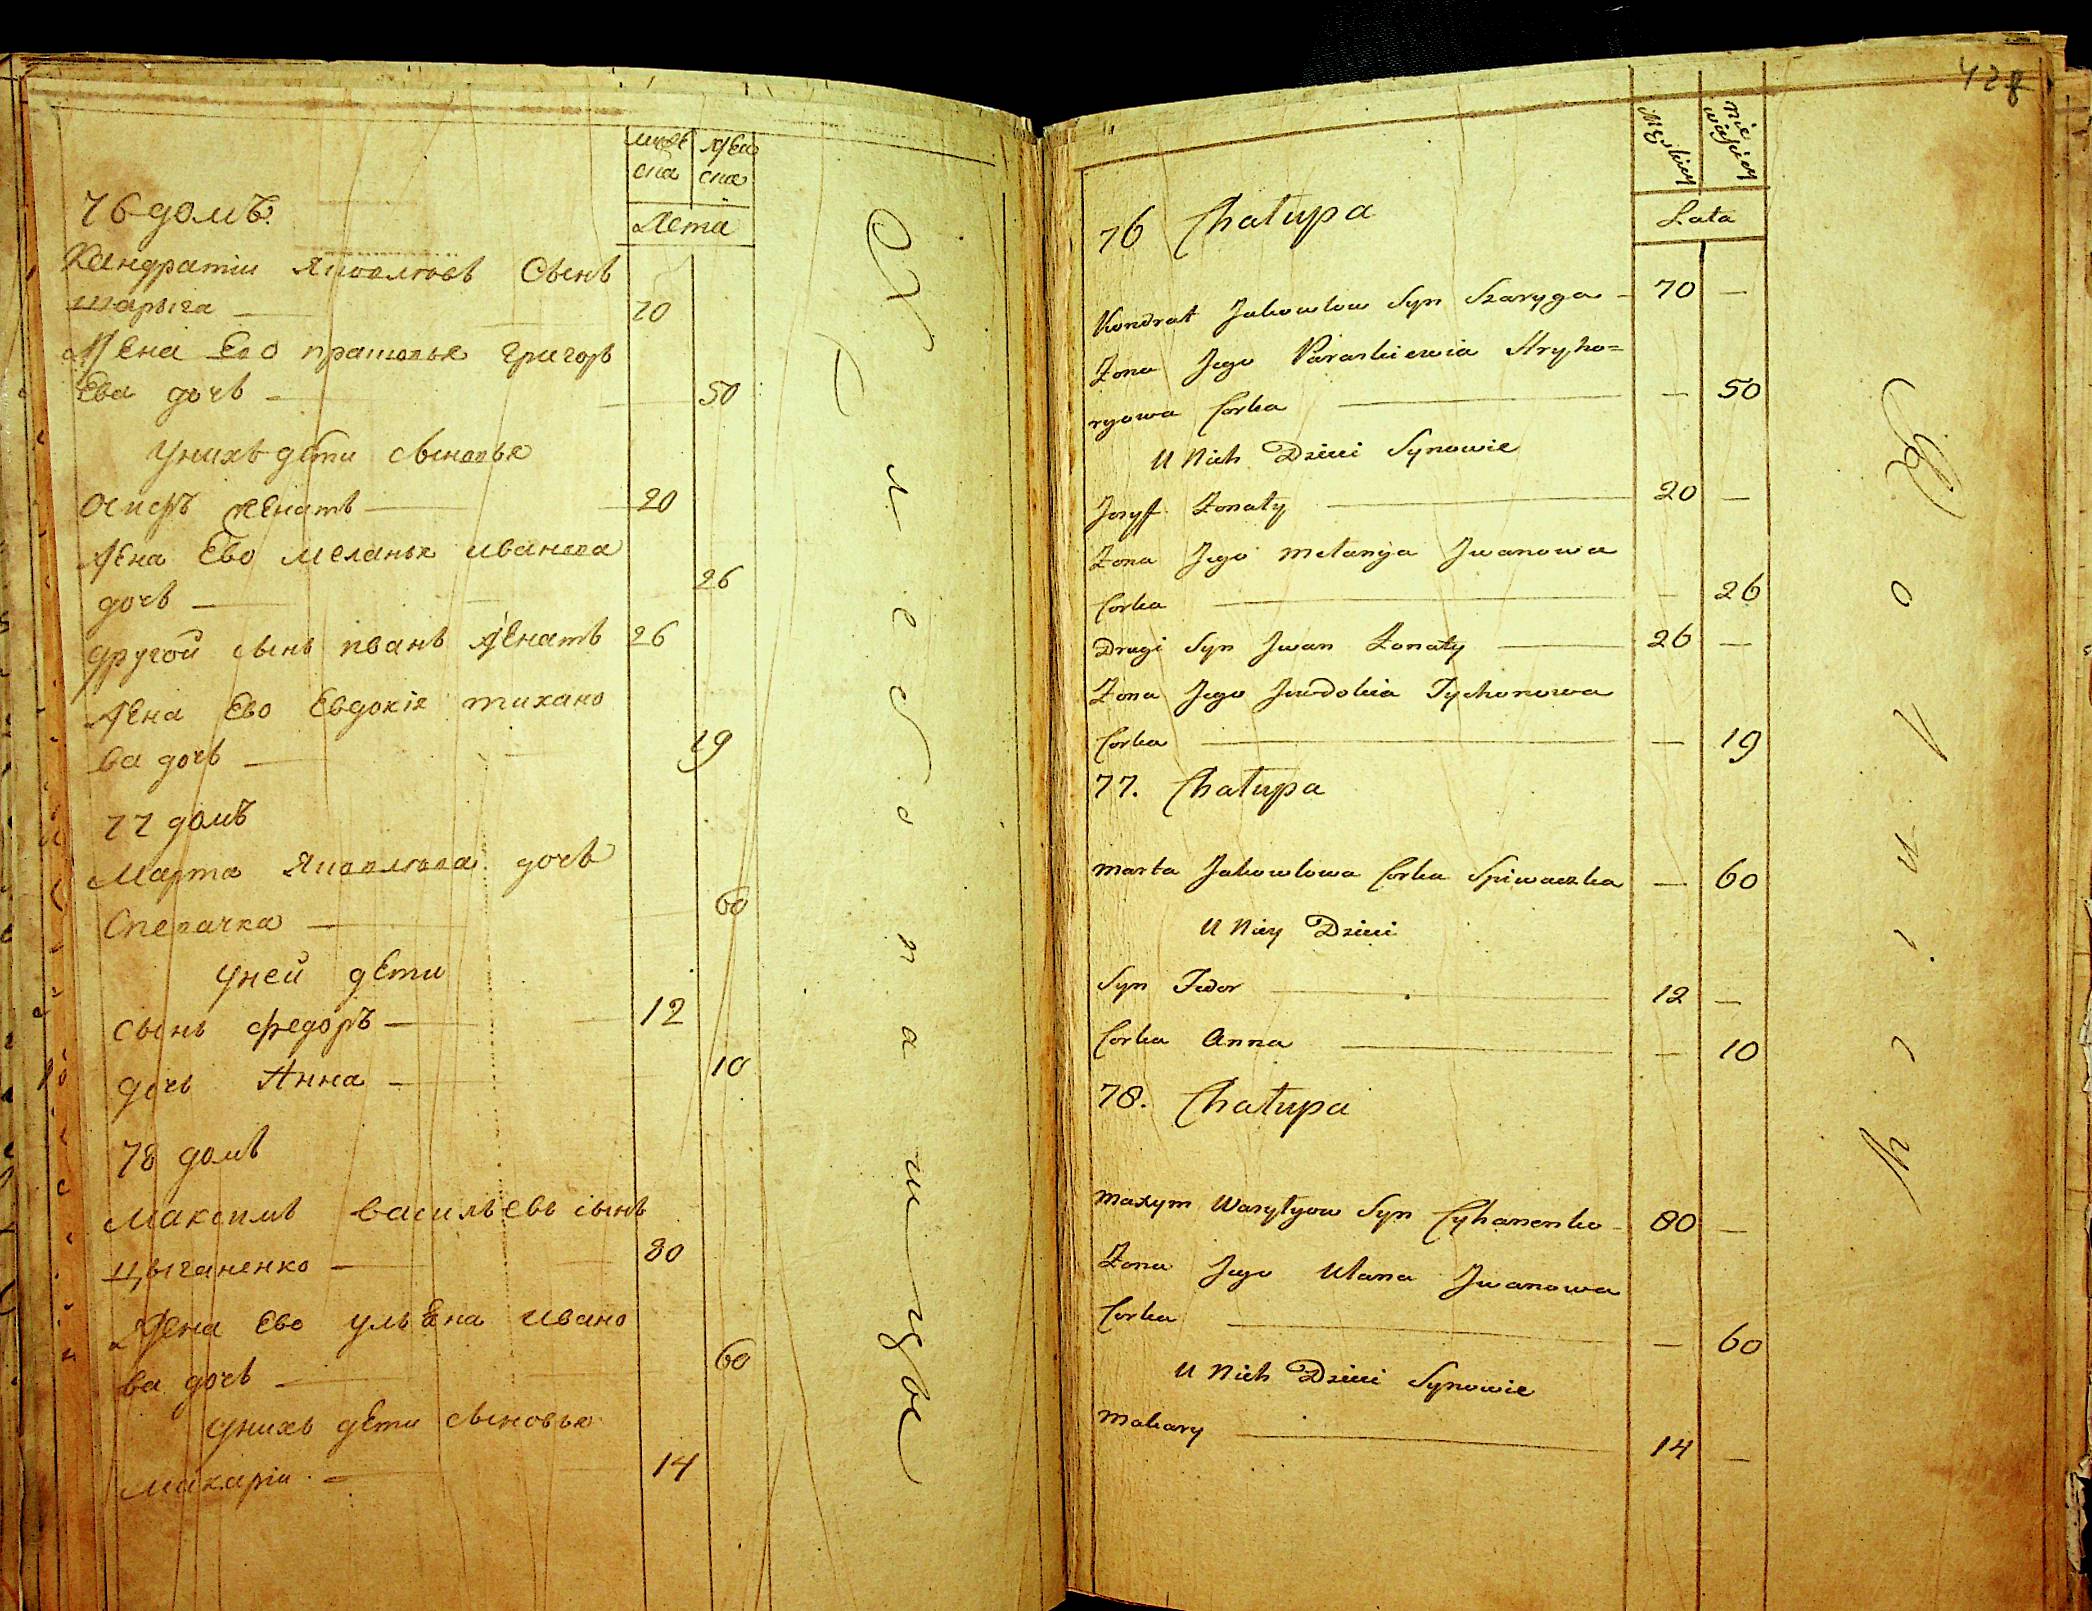 мужеска
женска
Лета
76 домъ.
Кандратіи Яковлевъ Сынъ
шарыга — 70
Жена Ево прасковья Григорь
Ева дочь — 50
Унихъ дети сыновья
Осипъ женатъ — 20
Жена Ево меланья иванова
дочь — 26
другой сынъ иванъ женатъ 26
Жена Ево Евдокія тихано
ва дочь — 19
77 домъ
Марта Яковлева дочь
Спевачка — 60
Уней дети
Сынъ федоръ — 12
дочь Анна — 10
78 домъ
Максимъ васильевъ сынъ
цыганенко — 80
Жена Ево ульяна ивано
ва дочь — 60
Унихъ дети сыновья
макаріи — 14
428
Męskiey
Niewieściey
Lata
76 Chałupa
Kondrat Jakowlow Syn Szaryga – 70 —
Żona Jego Paraskiewia Hryho=
ryowa Corka — — 50
U Nich Dzieci Synowie
Jozyf Żonaty — 20 —
Żona Jego Melanija Jwanowa
Corka — — 26
Drugi Syn Jwan Żonaty — 26 —
Żona Jego Jewdokia Tychonowa
Corka — — 19
77. Chałupa
Marta Jakowlowa Corka Spiwaczka — 60
U Niey Dzieci
Syn Fedor — 12 —
Corka Anna — — 10
78. Chałupa
Maxym Wasylyow Syn Cyhanenko – 80 —
Żona Jego Ulana Jwanowa
Corka — — 60
U Nich Dzieci Synowie
Makary — 14 —